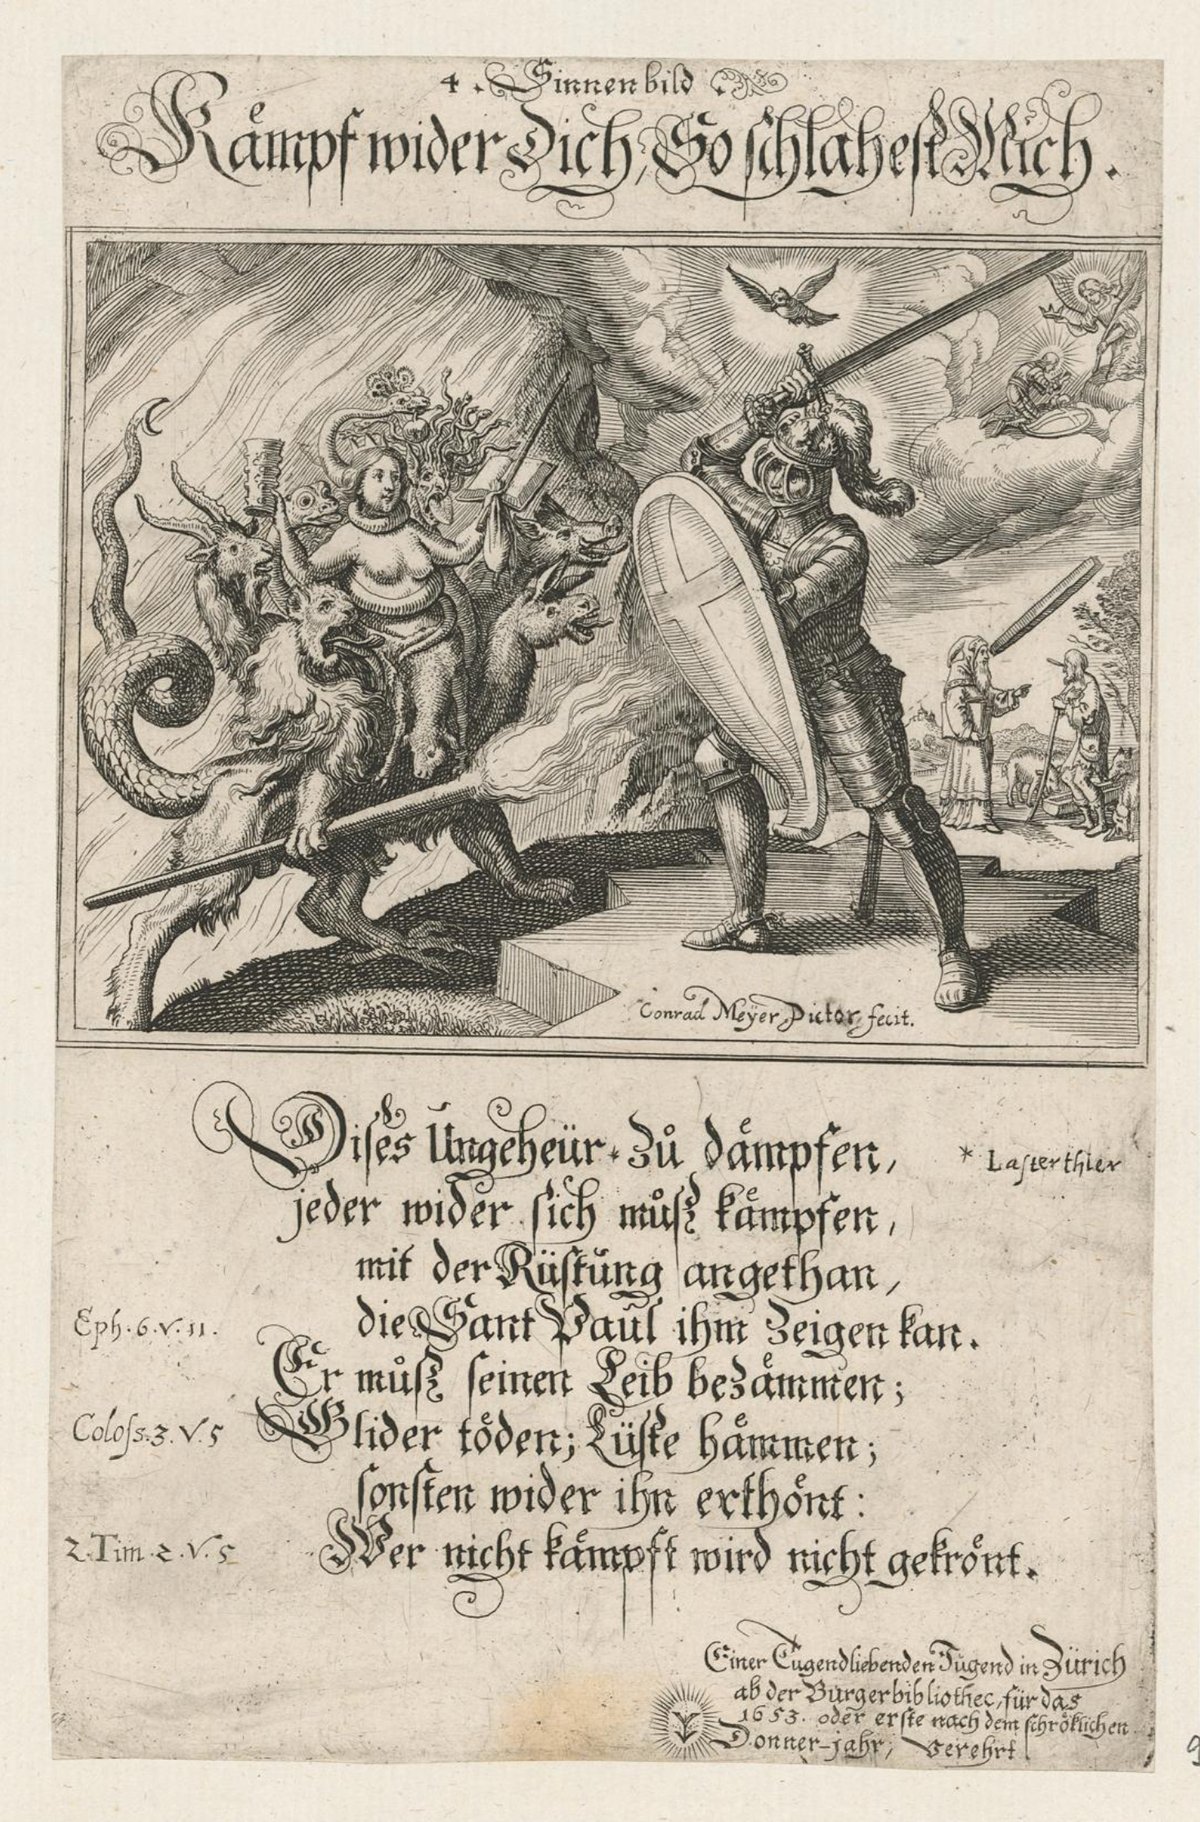 4. Sinnenbild
Kaͤmpf wider Dich, So schlahest Mich.
Conrad Meÿer Pictor fecit.
Dises Ungeheür * zů daͤmpfen,
* Lasterthier
jeder wider sich můß kaͤmpfen,
mit der Rüstung angethan,
Eph. 6. v. 11.
die Sant Paul ihm zeigen kan.
Er můß seinen Leib bezaͤmmen;
Coloss. 3. v. 5
Glider toͤden; Lüste haͤmmen;
sonsten wider ihn erthoͤnt:
2. Tim. 2. v. 5
Wer nicht kaͤmpft wird nicht gekroͤnt.
Einer Tugendliebenden Jugend in Zürich
ab der Burgerbibliothec, für das
1653. oder erste nach dem schröklichen
Donner-jahr; verehrt
9